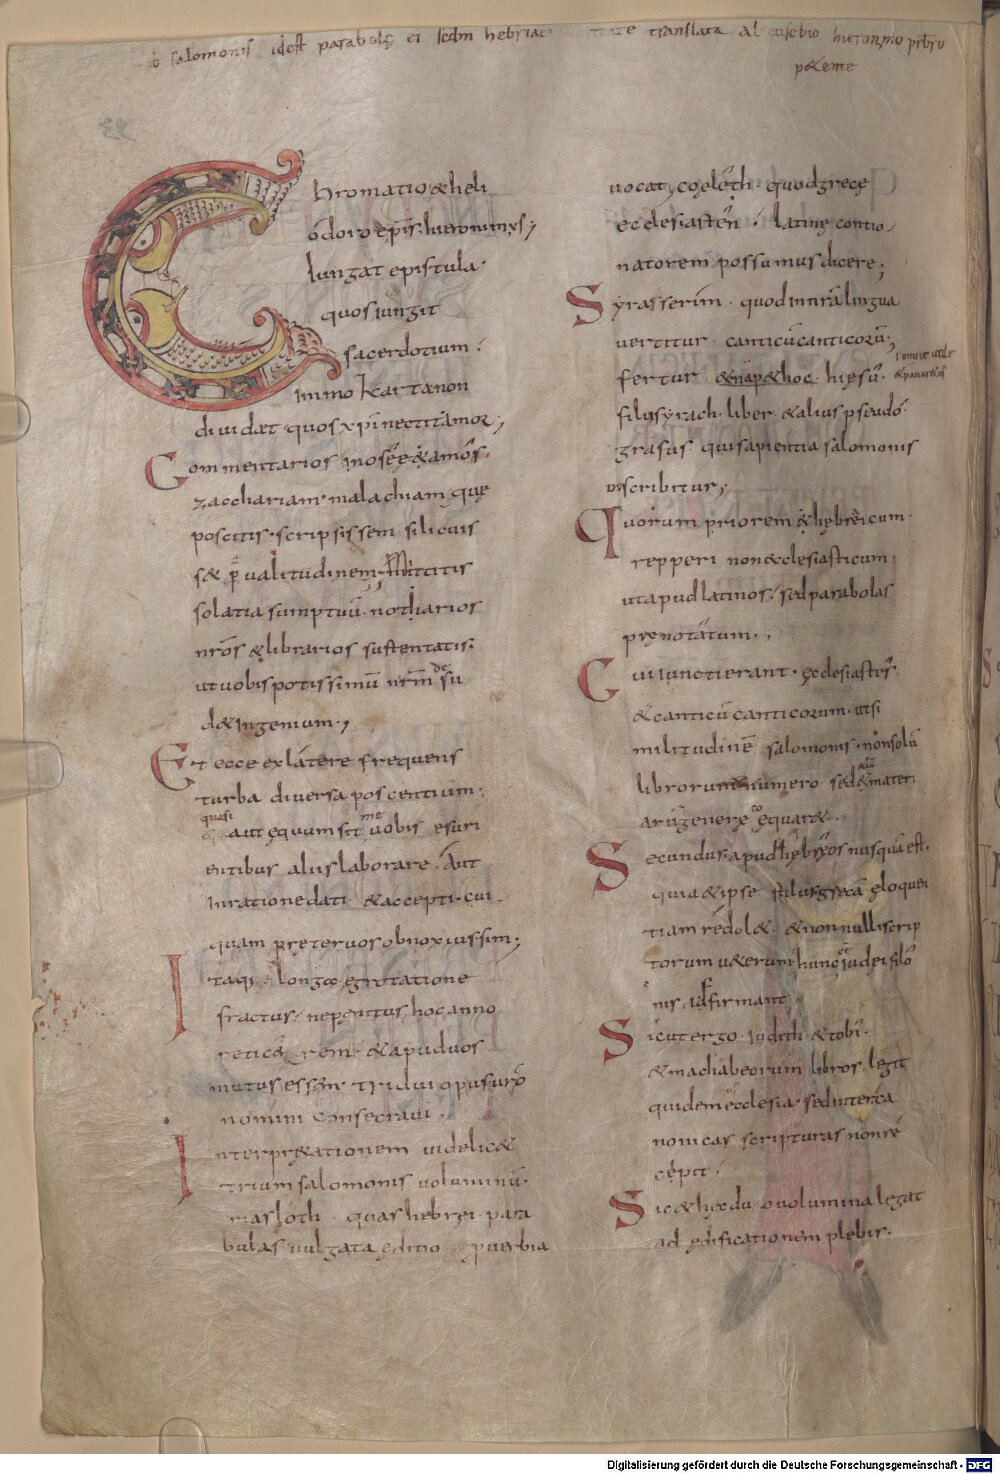 salomonis idest parabolę ei scdm hebriac translata al eusebio hieronimo prbro
petente
Chromatio & heli
odoro epis. hieronimus;
Iungat epistula
quos iungit
sacerdotium.
immo kartanon
diuidæt quos xpi nectit amor;
Commentarios inosee & amos.
zacchariam. malachiam quę
poscitis. scripsissem si licuis
s& p ualitudinem. Mittitis
solatia sumptuu. nothiarios
nros & librarios sustentatis.
ut uobis potissimu nrm de su
d& Ingenium.,
Et ecce ex latere frequens
turba diuersa poscentium.
quasi me
aut equum sit uobis esuri
entibus aliis laborare. Aut
In ratione dati & accepti. cui
quam preter uos obnoxius sim;
Itaq; longæ egrotatione
fractus. ne penitus hoc anno
retice rem. & apud uos
mutus essem. tridui opus uro
nomini consecraui.
Interpr&ationem uidelic&
trium salomonis uoluminu.
masloth quas hebrei para
bulas uulgata editio puerbia
uocat; coeleth. quod grece
ecclesiasten. latine contio
natorem possumus dicere;
Syrasserim. quod in nra lingua
uertitur. canticu canticoru;
fertur & nap& hoc. hiesu.
filii syrach. liber. & alius pseudo
grafus. qui sapientia salomonis
inscribitur;
Quorum priorem & hebreicum.
repperi non ecclesiasticum
ut apud latinos. sed parabolas
prenotatum.
Cui Iuncti erant. ecclesiastes.
& canticu canticorum. ut si
militudine salomonis. non solu
librorum numero sed & materi
aru genere equar&.
Secundus apud hebreos nusqua est.
quia & ipse stilus greca eloquen
tiam redol&. & non nulli scrip
torum u&erum hunc iudei filo
nis adfirmant
Sicut ergo iudith & tobi.
& machabeorum libros legit
quidem ecclesia. sed inter ca
nonicas scripturas non re
cepit.
Sic & hec duo uolumina legat
ad edificationem plebis.
Digitalisierung gefördert durch die Deutsche Forschungsgemeinschaft - DFG